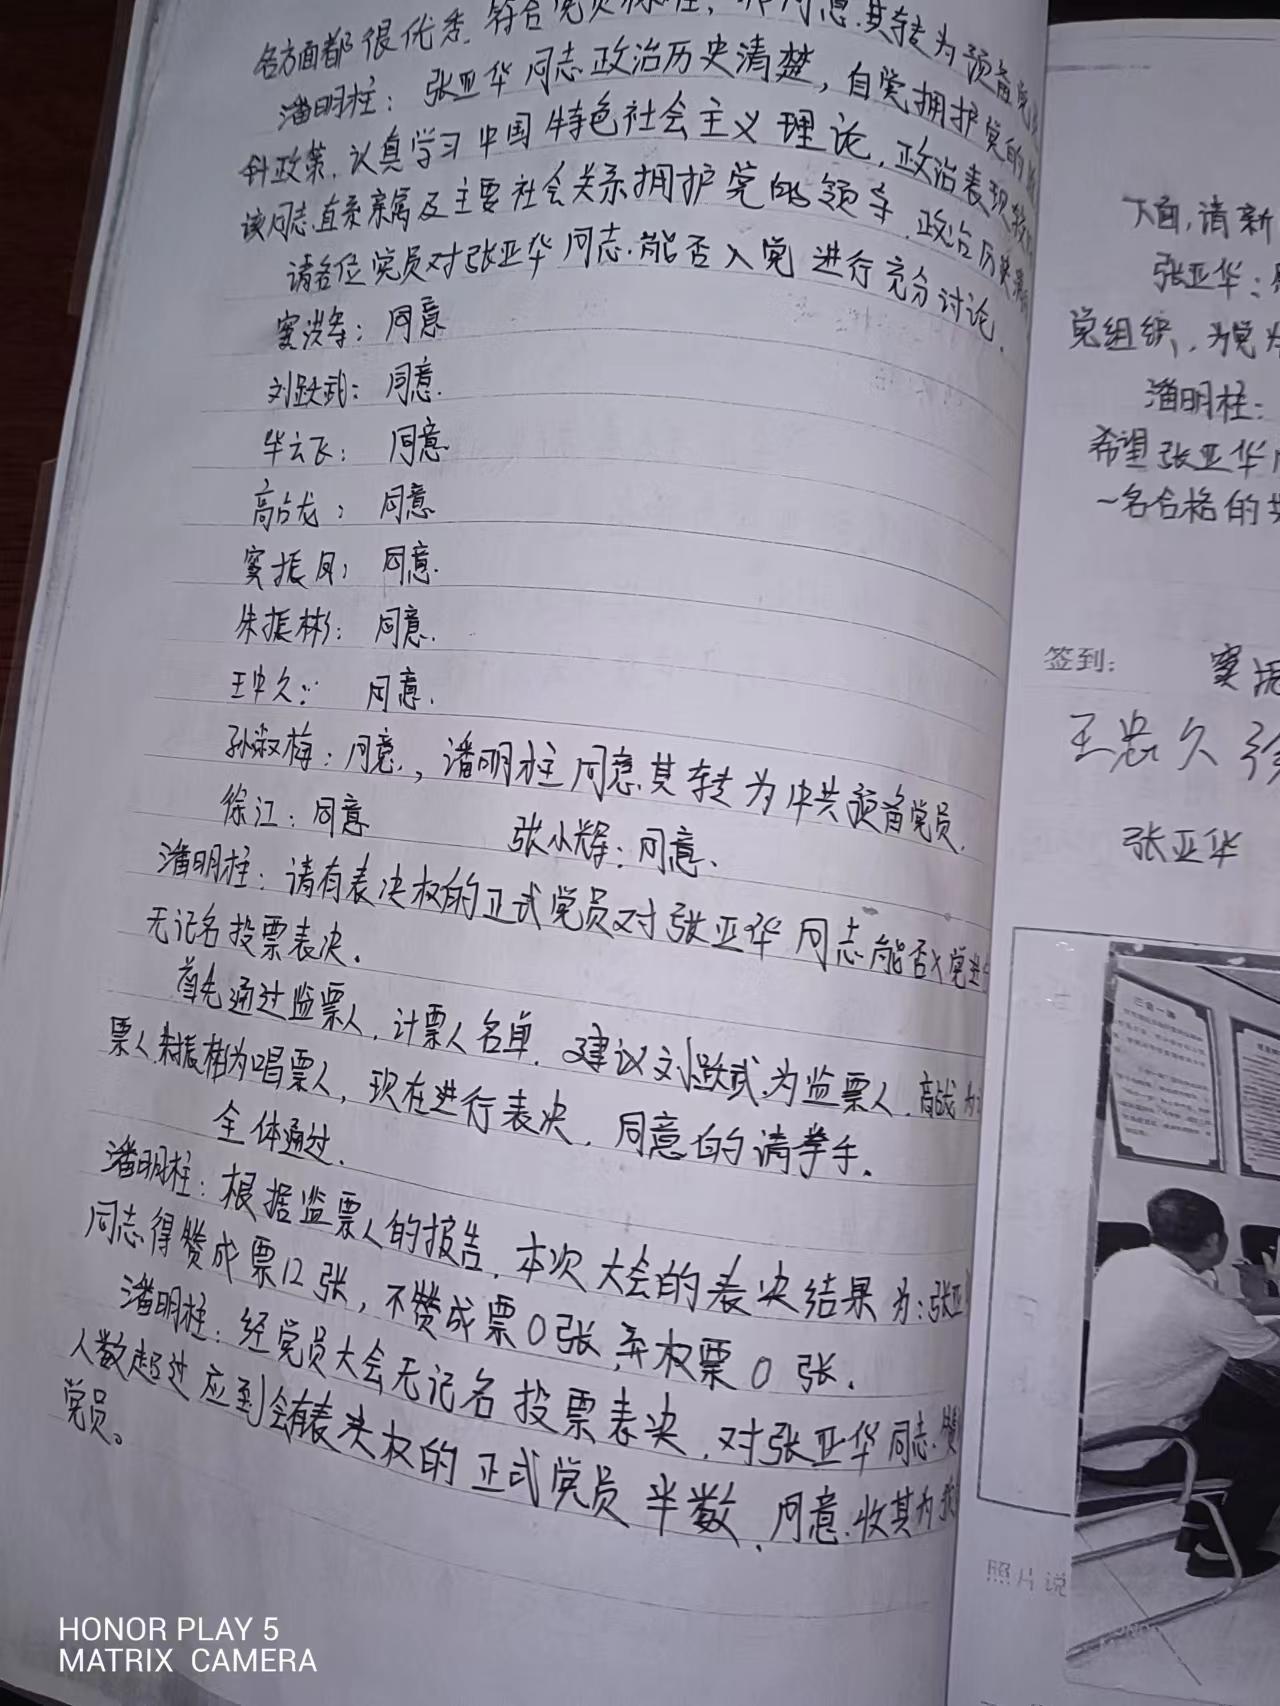 各方面都很优秀,符合党员标准,我同意其转为预备党
潘明柱:张亚华同志政治历史清楚,自觉拥护党的
针政策,认真学习中国特色社会主义理论,政治表现较
该同志直系亲属及主要社会关系拥护党的领导,政治历史清
请各位党员对张亚华同志能否入党进行充分讨论.
窦洪军:同意
刘跃武:同意.
华云飞:同意
高占龙:同意
窦振凤:同意.
朱振彬:同意.
王中久:同意.
孙淑梅:同意.,潘明柱同意其转为中共预备党员.
徐江:同意 张小辉:同意、
潘明柱:请有表决权的正式党员对张亚华同志能否入党进行
无记名投票表决.
首先通过监票人,计票人名单.建议刘跃武为监票人,高占龙为
票人,朱振彬为唱票人,现在进行表决,同意的请举手.
全体通过.
潘明柱:根据监票人的报告,本次大会的表决结果为:张亚
同志得赞成票12张,不赞成票0张,弃权票0张.
潘明柱:经党员大会无记名投票表决,对张亚华同志赞
人数超过应到会有表决权的正式党员半数,同意收其为预
党员。
下面,请新
张亚华:
党组织,为党
潘明柱:
希望张亚华同
一名合格的共
签到: 窦振
王忠久 徐
张亚华
三会一课
照片说
HONOR PLAY 5
MATRIX CAMERA